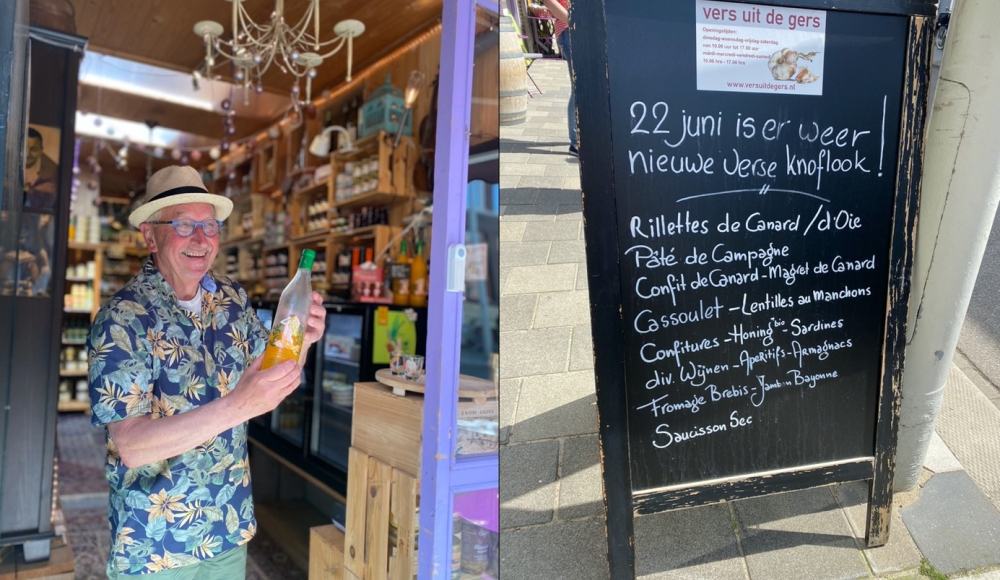 vers uit de gers
Openingstijden:
dinsdag-woensdag-vrijdag-zaterdag
van 10.00 uur tot 17.00 uur
mardi-mercredi-vendredi-samedi
10.00 hrs - 17.00 hrs
www.versuitdegers.nl
22 juni is er weer
nieuwe verse knoflook!
Rillettes de Canard / d'Oie
Pâté de Campagne
Confit de Canard - Magret de Canard
Cassoulet - Lentilles au Manchons
Confitures - Honing bio - Sardines
div. Wijnen - Aperitifs - Armagnacs
Fromage Brebis - Jambon Bayonne
Saucisson Sec